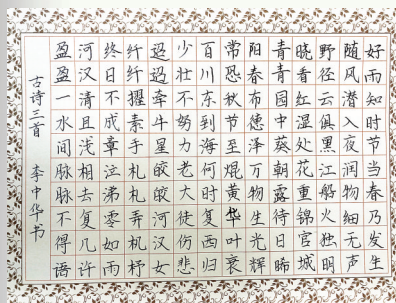 好雨知时节当春乃发生
随风潜入夜润物细无声
野径云俱黑江船火独明
晓看红湿处花重锦官城
青青园中葵朝露待日晞
阳春布德泽万物生光辉
常恐秋节至焜黄华叶衰
百川东到海何时复西归
少壮不努力老大徒伤悲
迢迢牵牛星皎皎河汉女
纤纤擢素手札札弄机杼
终日不成章泣涕零如雨
河汉清且浅相去复几许
盈盈一水间脉脉不得语
古诗三首 李中华书